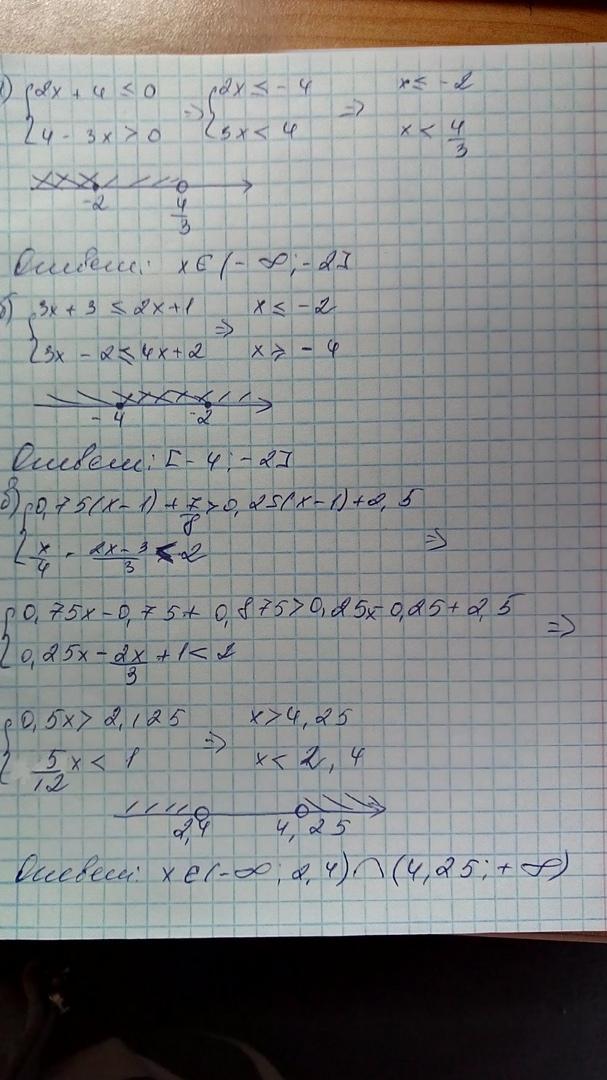 а) { 2x + 4 ≤ 0 => { 2x ≤ - 4 => x ≤ - 2
4 - 3x > 0 3x < 4 x < 4/3
-2 4/3
Ответ: x∈(- ∞; -2]
б) { 3x + 3 ≤ 2x+1 => x ≤ -2
3x - 2 ≤ 4x + 2 x ≥ - 4
-4 -2
Ответ: [- 4; -2]
в) { 0,75(x-1) + 7/8 > 0,25(x-1)+2,5
x/4 - 2x-3/3 < 2 =>
{ 0,75x-0,75+ 0,875>0,25x-0,25+2,5 =>
0,25x - 2x/3 + 1 < 2
{ 0,5x > 2,125 => x>4,25
5/12 x < 1 x < 2,4
2,4 4,25
Ответ: x∈(-∞; 2,4)∩(4,25; +∞)